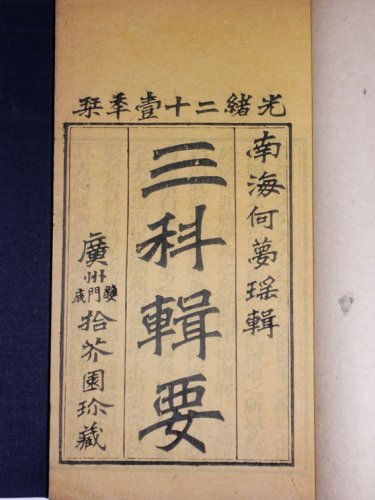 光緒二十壹季栞
南海何夢瑤輯
三科輯要
廣州雙門底拾芥園珍藏